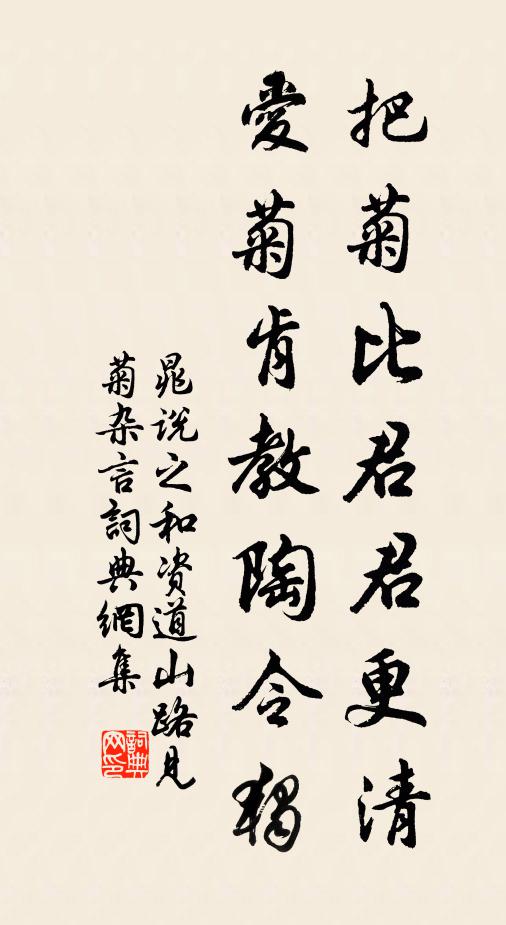 把菊比君君更清
愛菊肯教陶令獨
晁說之和資道山路見
菊杂言詞典網集
詞典
网印